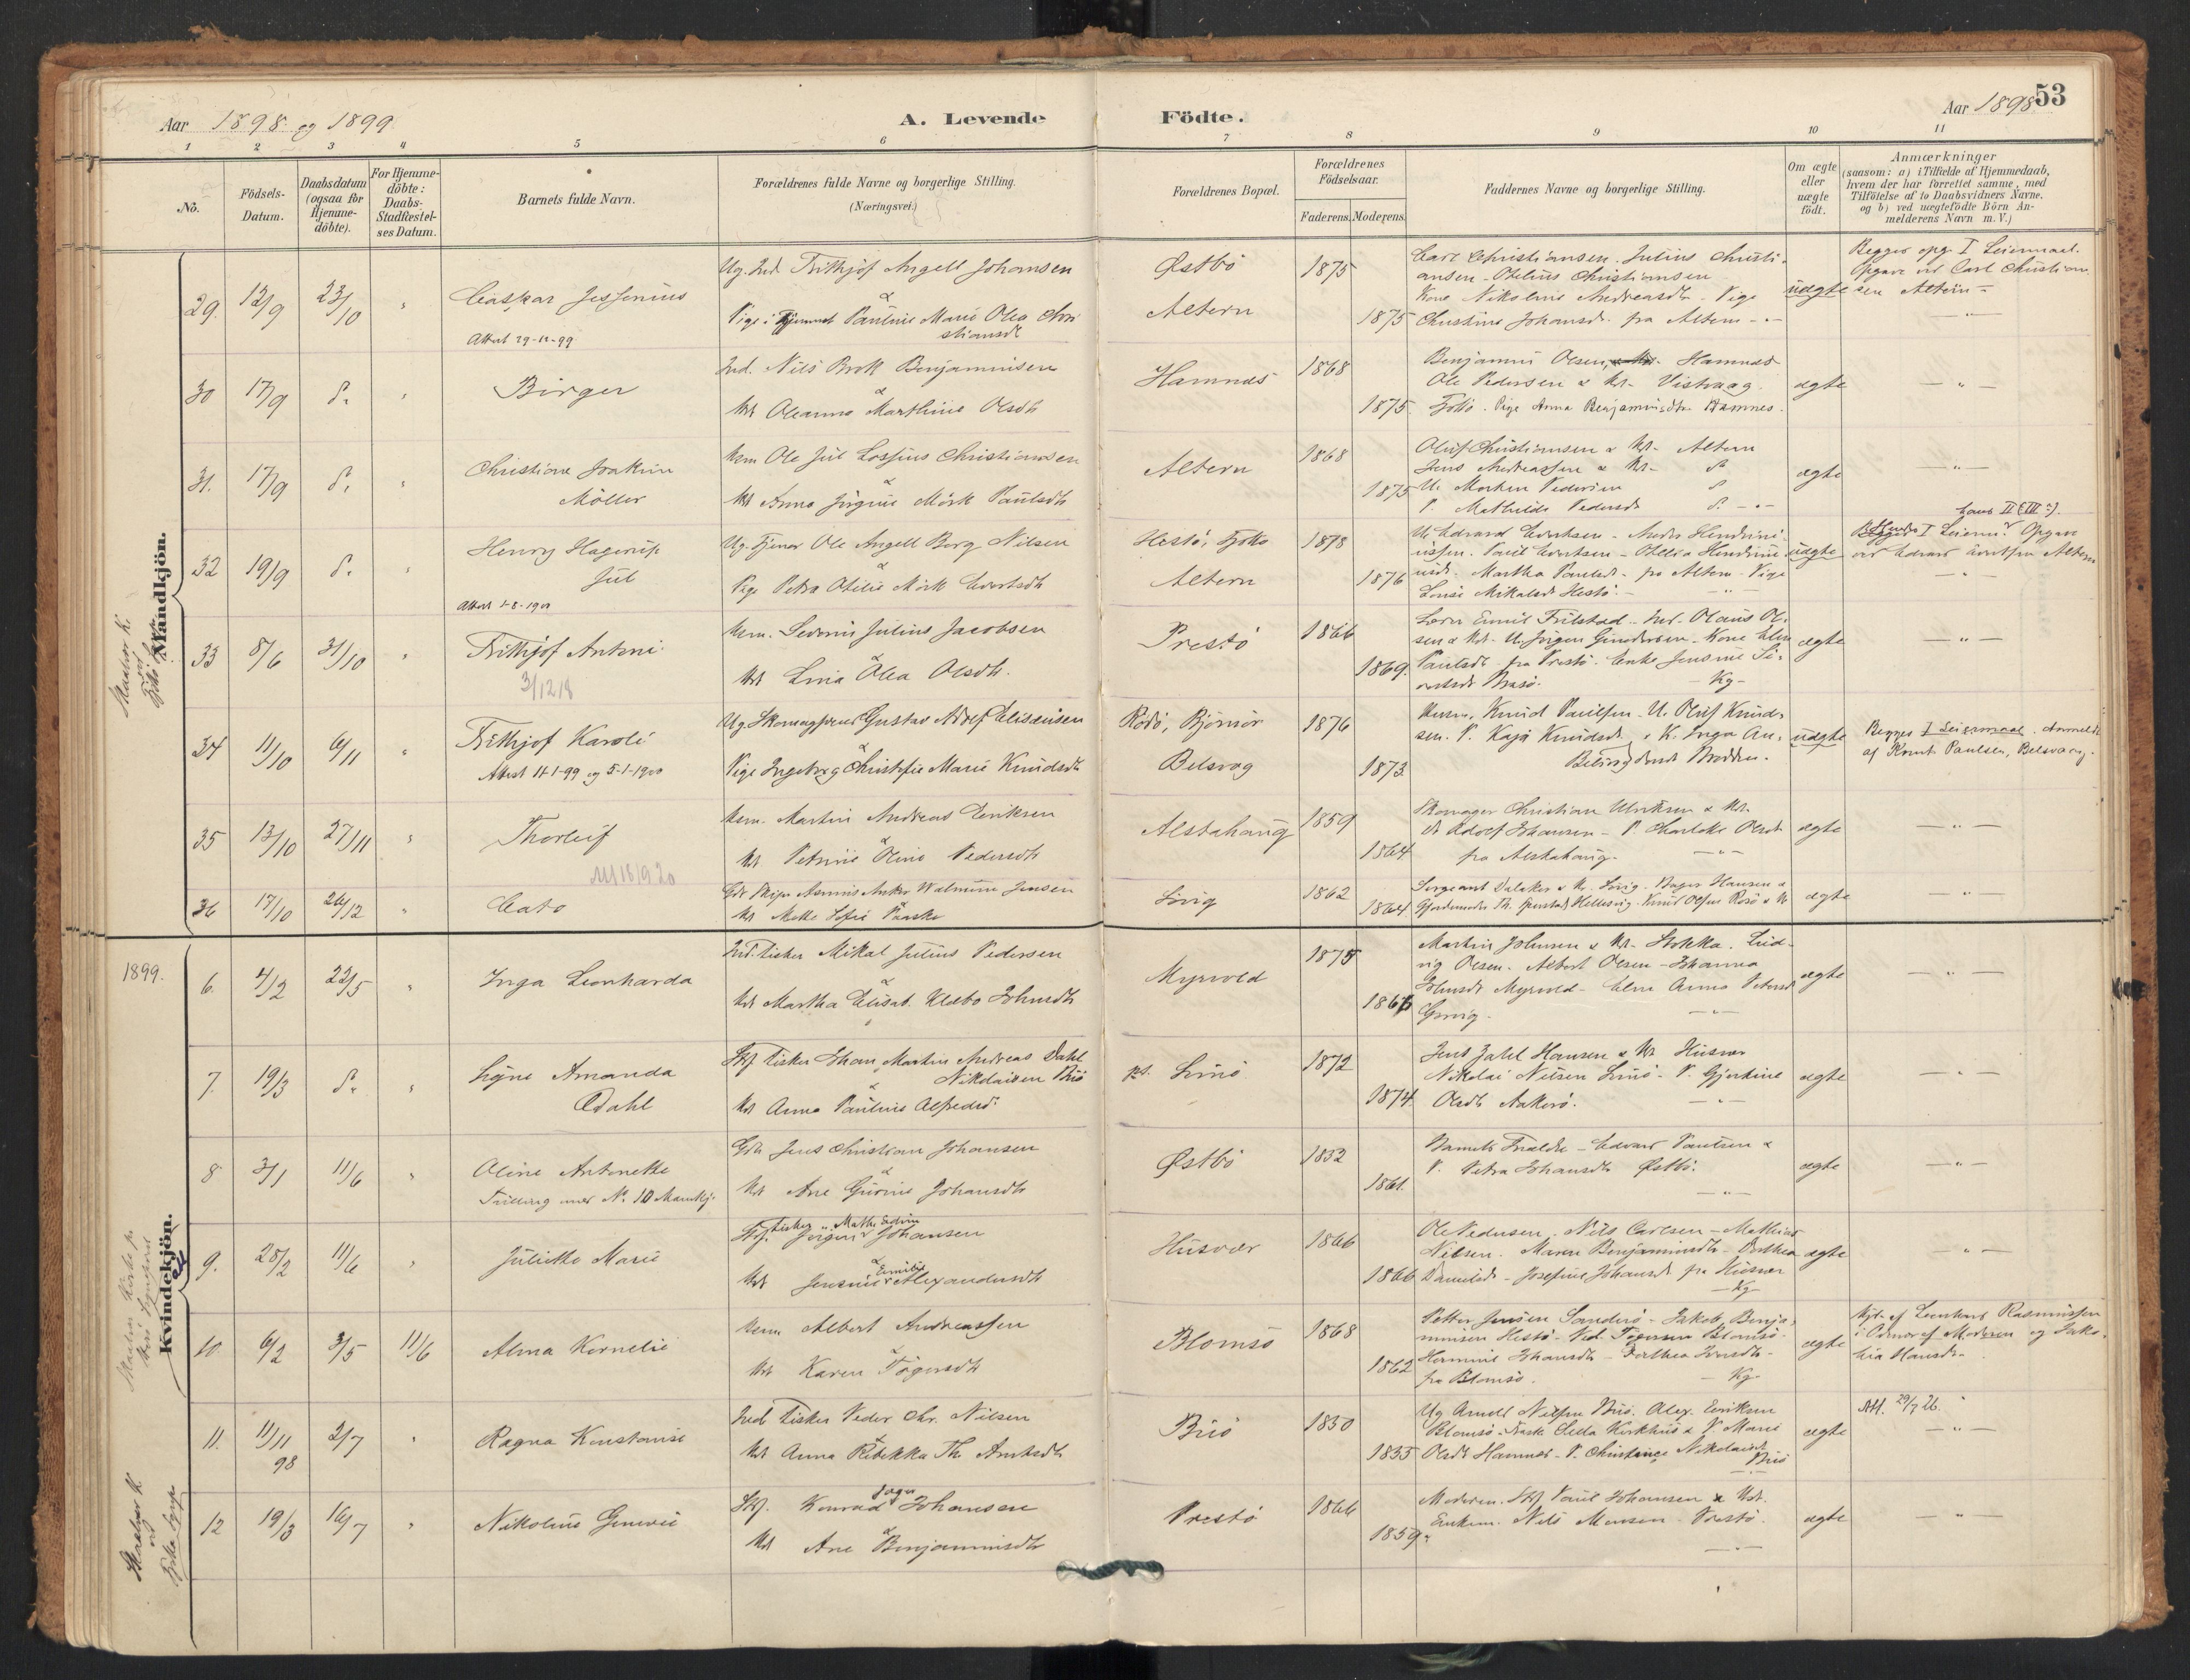 53
Aar 1898 og 1899
A. Levende Födte.
Aar 1898
1 2 3 4 5 6 7 8 9 10 11
No.
Födsels-
Datum.
Daabsdatum
(ogsaa for
Hjemme-
döbte).
For Hjemme-
döbte:
Daabs-
Stadfæstel-
ses Datum.
Barnets fulde Navn.
Forældrenes fulde Navne og borgerlige Stilling.
(Næringsvei.)
Forældrenes Bopæl.
Forældrenes
Födselsaar.
Faderens. Moderens.
Faddernes Navne og borgerlige Stilling.
Om ægte
eller
uægte
födt.
Anmærkninger
(saasom: a) i Tilfælde af Hjemmedaab,
hvem der har forrettet samme, med
Tilföielse af to Daabsvidners Navne.
og b) ved uægtefödte Börn An-
melderens Navn m. V.)
Mandkjön.
29. 12/9 23/10 "
Caspar Jessenius
Attest 29-11-99
Ug. Ind. Frithjof Angell Johansen
&
Pige i Hjemmet Pauline Marie Olea Chri
stiansdt
Østbö
Altern
1875
1875
Carl Christiansen. Julius Christi-
ansen - Otelius Christiansen
Kone Nikoline Andreasdt. Pige
Christine Johansd. fra Altern
uægte
Begges opg. I Leiermaal.
Opgave ved Carl Christian
sen Altern
30 17/9 d. "
Birger
Ind. Nils Brok Benjaminsen
&
Kst Oleanna Marthine Olsdt
Hamnæs
1868
1875.
Benjamin Olsen Hamnæs
Ole Pedersen & Kst. Vistvaag.
Tjötö. Pige Anna Benjaminsdtr. Hamnes.
ægte
31. 17/9 d. "
Christian Joakim
Möller
Husm Ole Jul Lossius Christiansen
&
Kst Anna Jörgine Mörk Paulsdt
Altern
1868
1875
Oluf Christiansen & Kst. Altern
Jens Andreassen & Kst. d.
U. Morten Pedersen d.
P. Mathilde Pedersdt d.
ægte
32 19/9 d. "
Henry Hagerup
Jul
Attest 1-8-1901
Ug. Tjener Ole Angell Berg Nilsen
Pige Petra Otilie Mörk Evertsdt
Hestö, Tjötö
Altern
1878
1876
U. Edvard Evertsen - Anders Hendrini-
ussen. Paul Evertsen - Otelia Hendrini-
usdt. Martha Paulsdt. fra Altern - Pige
Louise Mikalsdt Hestö.
uægte
hans II (III ?).
Hendes I Leierm. Opgave
ved Edvard Evertsen Altern
33 8/6 31/10 "
Frithjof Antoni
3/12 18
Husm. Severin Julius Jacobsen
&
Kst Lina Olea Olsdt.
Prestö
1866
1869.
Lærer Emil Frilstad - Ind. Olaus Ol-
sen & Kst. U. Jörgen Gundersen - Kone Elen
Paulsdt fra Prestö. Enke Jensine Si-
vertsdt Brasö. Kg
ægte
34 11/10 6/11 "
Frithjof Karoli
Attest 11-1-99 og 5-1-1900
Ug. Skomagersvend Gustav Adolf Eliseusen
&
Pige Ingeborg Christofie Marie Knudsdt
Rödö, Bjönsör
Belsvag
1876
1873
Husm. Knud Paulsen - U. Oluf Knud-
sen. P. Kaja Knudsdt, K. Inga An-
Belsvag
uægte
Begges I Leiermaal. Anmeldt
af Knut Paulsen, Belsvaag.
35 13/10 27/11 "
Thorleif
Husm. Martin Andreas Eriksen
&
Kst Petrine Oline Pedersdt
Alstahaug
1859
1864
Skomager Christian Ulriksen & Kst.
Adolf Johansen - P. Charlotte Olsdt
fra Alstahaug.
ægte
36 17/10 26/12 "
Cato
&
Kst Mette Sofie Paaske
Sövig
1862
1864
ægte
1899.
Kvindekjön.
6. 4/2 22/5 "
Inga Leonharda
Ind. Fisker Mikal Julius Pedersen
&
Kst Martha Elisab. Klebo Johnsdt
Myrvold
1875
Martin Johnsen & Kst. Stokka. Lud-
vig Olsen. Albert Olsen - Johanna
Johnsdt Myrvold - Elen Anna Petersdt
ægte
7. 19/3 d. "
Signe Amanda
Dahl
Stf Fisker Johan Martin Andreas Dahl
Nikolaisen Buö
&
Kst Anna Pauline Alfredsd.
pt.
1872
1874.
Jens Zahl Hansen & Kst Husvær
Olsdt Aakerö.
ægte
8 3/1 11/6 "
Oline Antonette
Tvilling med No. 10 Mandkj.
Gdr Jens Christian Johansen
&
Kst Ane Gurine Johansdt
Østbö
1852
1861.
Barnets Forældre - Edvard Paulsen &
P. Petra Johansdt Østbö.
ægte
9. 28/2 11/6 "
Julitte Marie
Strf. Fisker Jörgen Math. Edvin Johansen
&
Kst Jensine Emilie Alexandersdt
Husvær
1866
1866
Ole Pedersen. Nils Carlsen - Mathias
Nilsen. Maren Benjaminsdt - Dorthea
Danielsdt - Josefine Johansdt fra Husvær
Kg
ægte
10 6/2 3/5 11/6
Alma Kornelie
Husm Albert Andreassen
&
Kst Karen Tögersdt
Blomsö
1868
1862
Petter Jensen Sandesö - Jakob Benja-
minsen Hestö - Ped. Tögersen Blomsö -
Hermine Johansdt - Dorthea
fra Blomsö. Kg
ægte
Hjd. af Leonhard Rasmussen
i Odmar af Moderen og Jako-
bia Hansdt.
11. 11/11 98 2/7 "
Ragna Konstanse
Ind Fisker Peder Chr. Nilsen
&
Kst Anna Rebekka Th. Arntsdt
Buö
1850
1855
Ug Arnold Nilsen Buö. Alex. Eeriksen
Blomsö - P. Marie
Olsdt Hamnæs - P. Christence Nikolaisdt
Buö
ægte
Att. 29/7 26.
12 19/3 16/7 "
Nikoline Gunerie
Stf. Konrad Johansen
&
Kst Ane Benjaminsdt
Prestö
1866
1859
Moderen. Stf Paul Johansen & Kst.
Enkem. Nils Monsen Prestö.
ægte